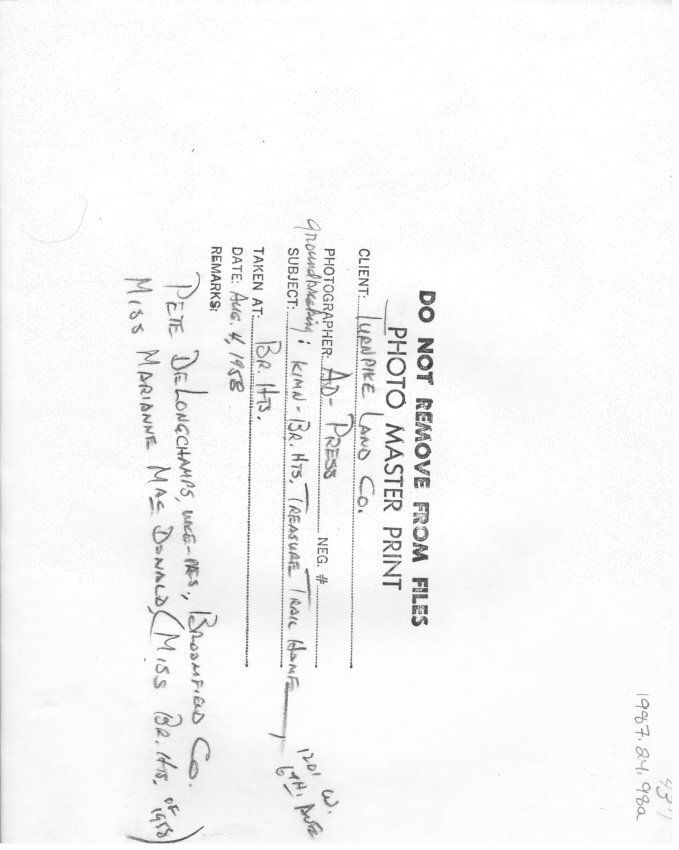 DO NOT REMOVE FROM FILES
PHOTO MASTER PRINT
CLIENT: TURNPIKE LAND CO.
PHOTOGRAPHER: AD-PRESS NEG. #
groundbreaking
SUBJECT: KIMN-BR. HTS. TREASURE TRAIL HOME
1201 W.
6TH. AVE
TAKEN AT: BR. HTS.
DATE: AUG. 4, 1958
REMARKS:
PETE DELONGCHAMPS, VICE-PRES., BROOMFIELD CO.
MISS MARIANNE MAC DONALD (MISS BR. HTS. OF 1958)
1987.24.98a